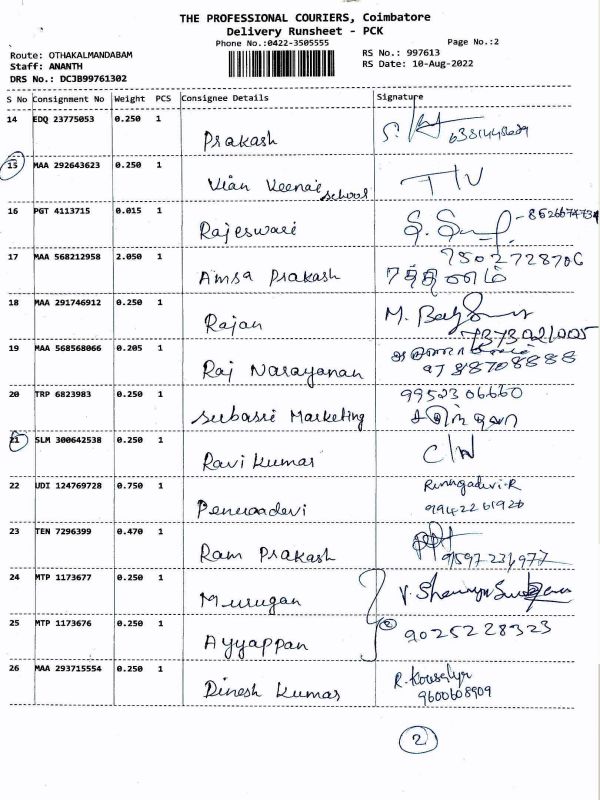 THE PROFESSIONAL COURIERS, Coimbatore
Delivery Runsheet - PCK
Phone No.:0422-3505555 Page No.:2
Route: OTHAKALMANDABAM RS No.: 997613
Staff: ANANTH RS Date: 10-Aug-2022
DRS No.: DCJB99761302
S No Consignment No Weight PCS Consignee Details Signature
14 EDQ 23775053 0.250 1 Prakash
15 MAA 292643623 0.250 1 Vian Keenai school
16 PGT 4113715 0.015 1 Rajeswari
17 MAA 568212958 2.050 1 Amsa Prakash 7502728706
18 MAA 291746912 0.250 1 Rajan
7373021005
19 MAA 568568066 0.205 1 Raj Narayanan 9788708888
20 TRP 6823983 0.250 1 Subasri Marketing 9952306660
21 SLM 300642538 0.250 1 Ravi Kumar
22 UDI 124769728 0.750 1 9942261920
23 TEN 7296399 0.470 1 Ram Prakash 9597231977
24 MTP 1173677 0.250 1 Murugan
25 MTP 1173676 0.250 1 Ayyappan 2 9025228323
26 MAA 293715554 0.250 1 Dinesh Kumar R. Kousalya
9600608909
2